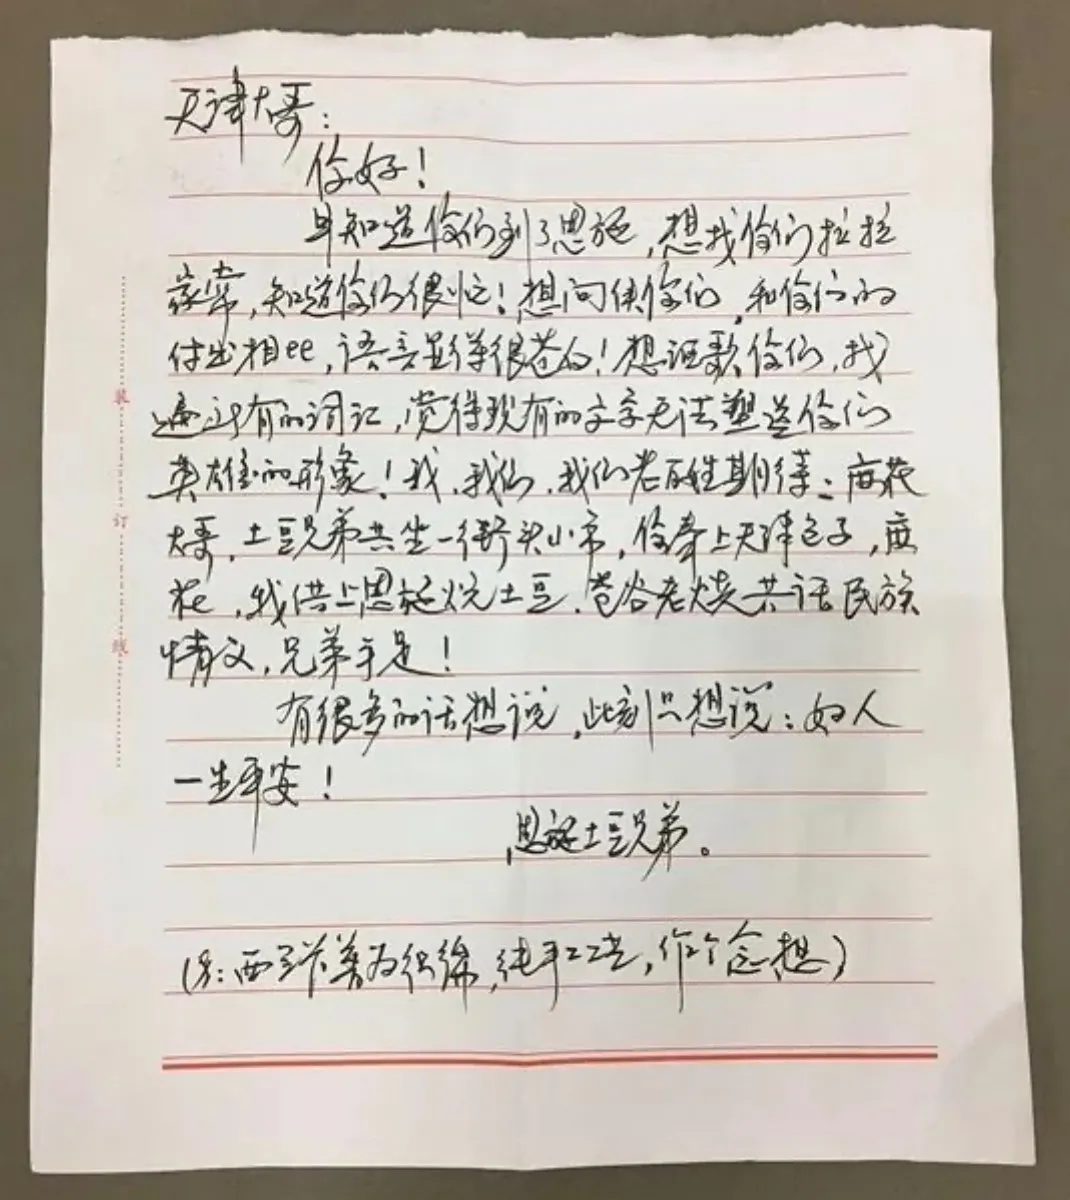 天津大哥：
你好！
早知道你们到了恩施，想找你们拉拉
家常，知道你们很忙！想问候你们，和你们的
付出相比，语言显得很苍白！想讴歌你们，找
遍所有的词汇，觉得现有的文字无法塑造你们
英雄的形象！我、我们、我们老百姓期待：麻花
大哥、土豆兄弟共坐一街头小市，你奉上天津包子，麻
花，我供上恩施炕土豆、苞谷老烧共话民族
情义，兄弟手足！
有很多的话想说，此刻只想说：好人
一生平安！
恩施土豆兄弟。
装
订
线
（另：西兰卡普为织锦，纯手工艺，作个念想）